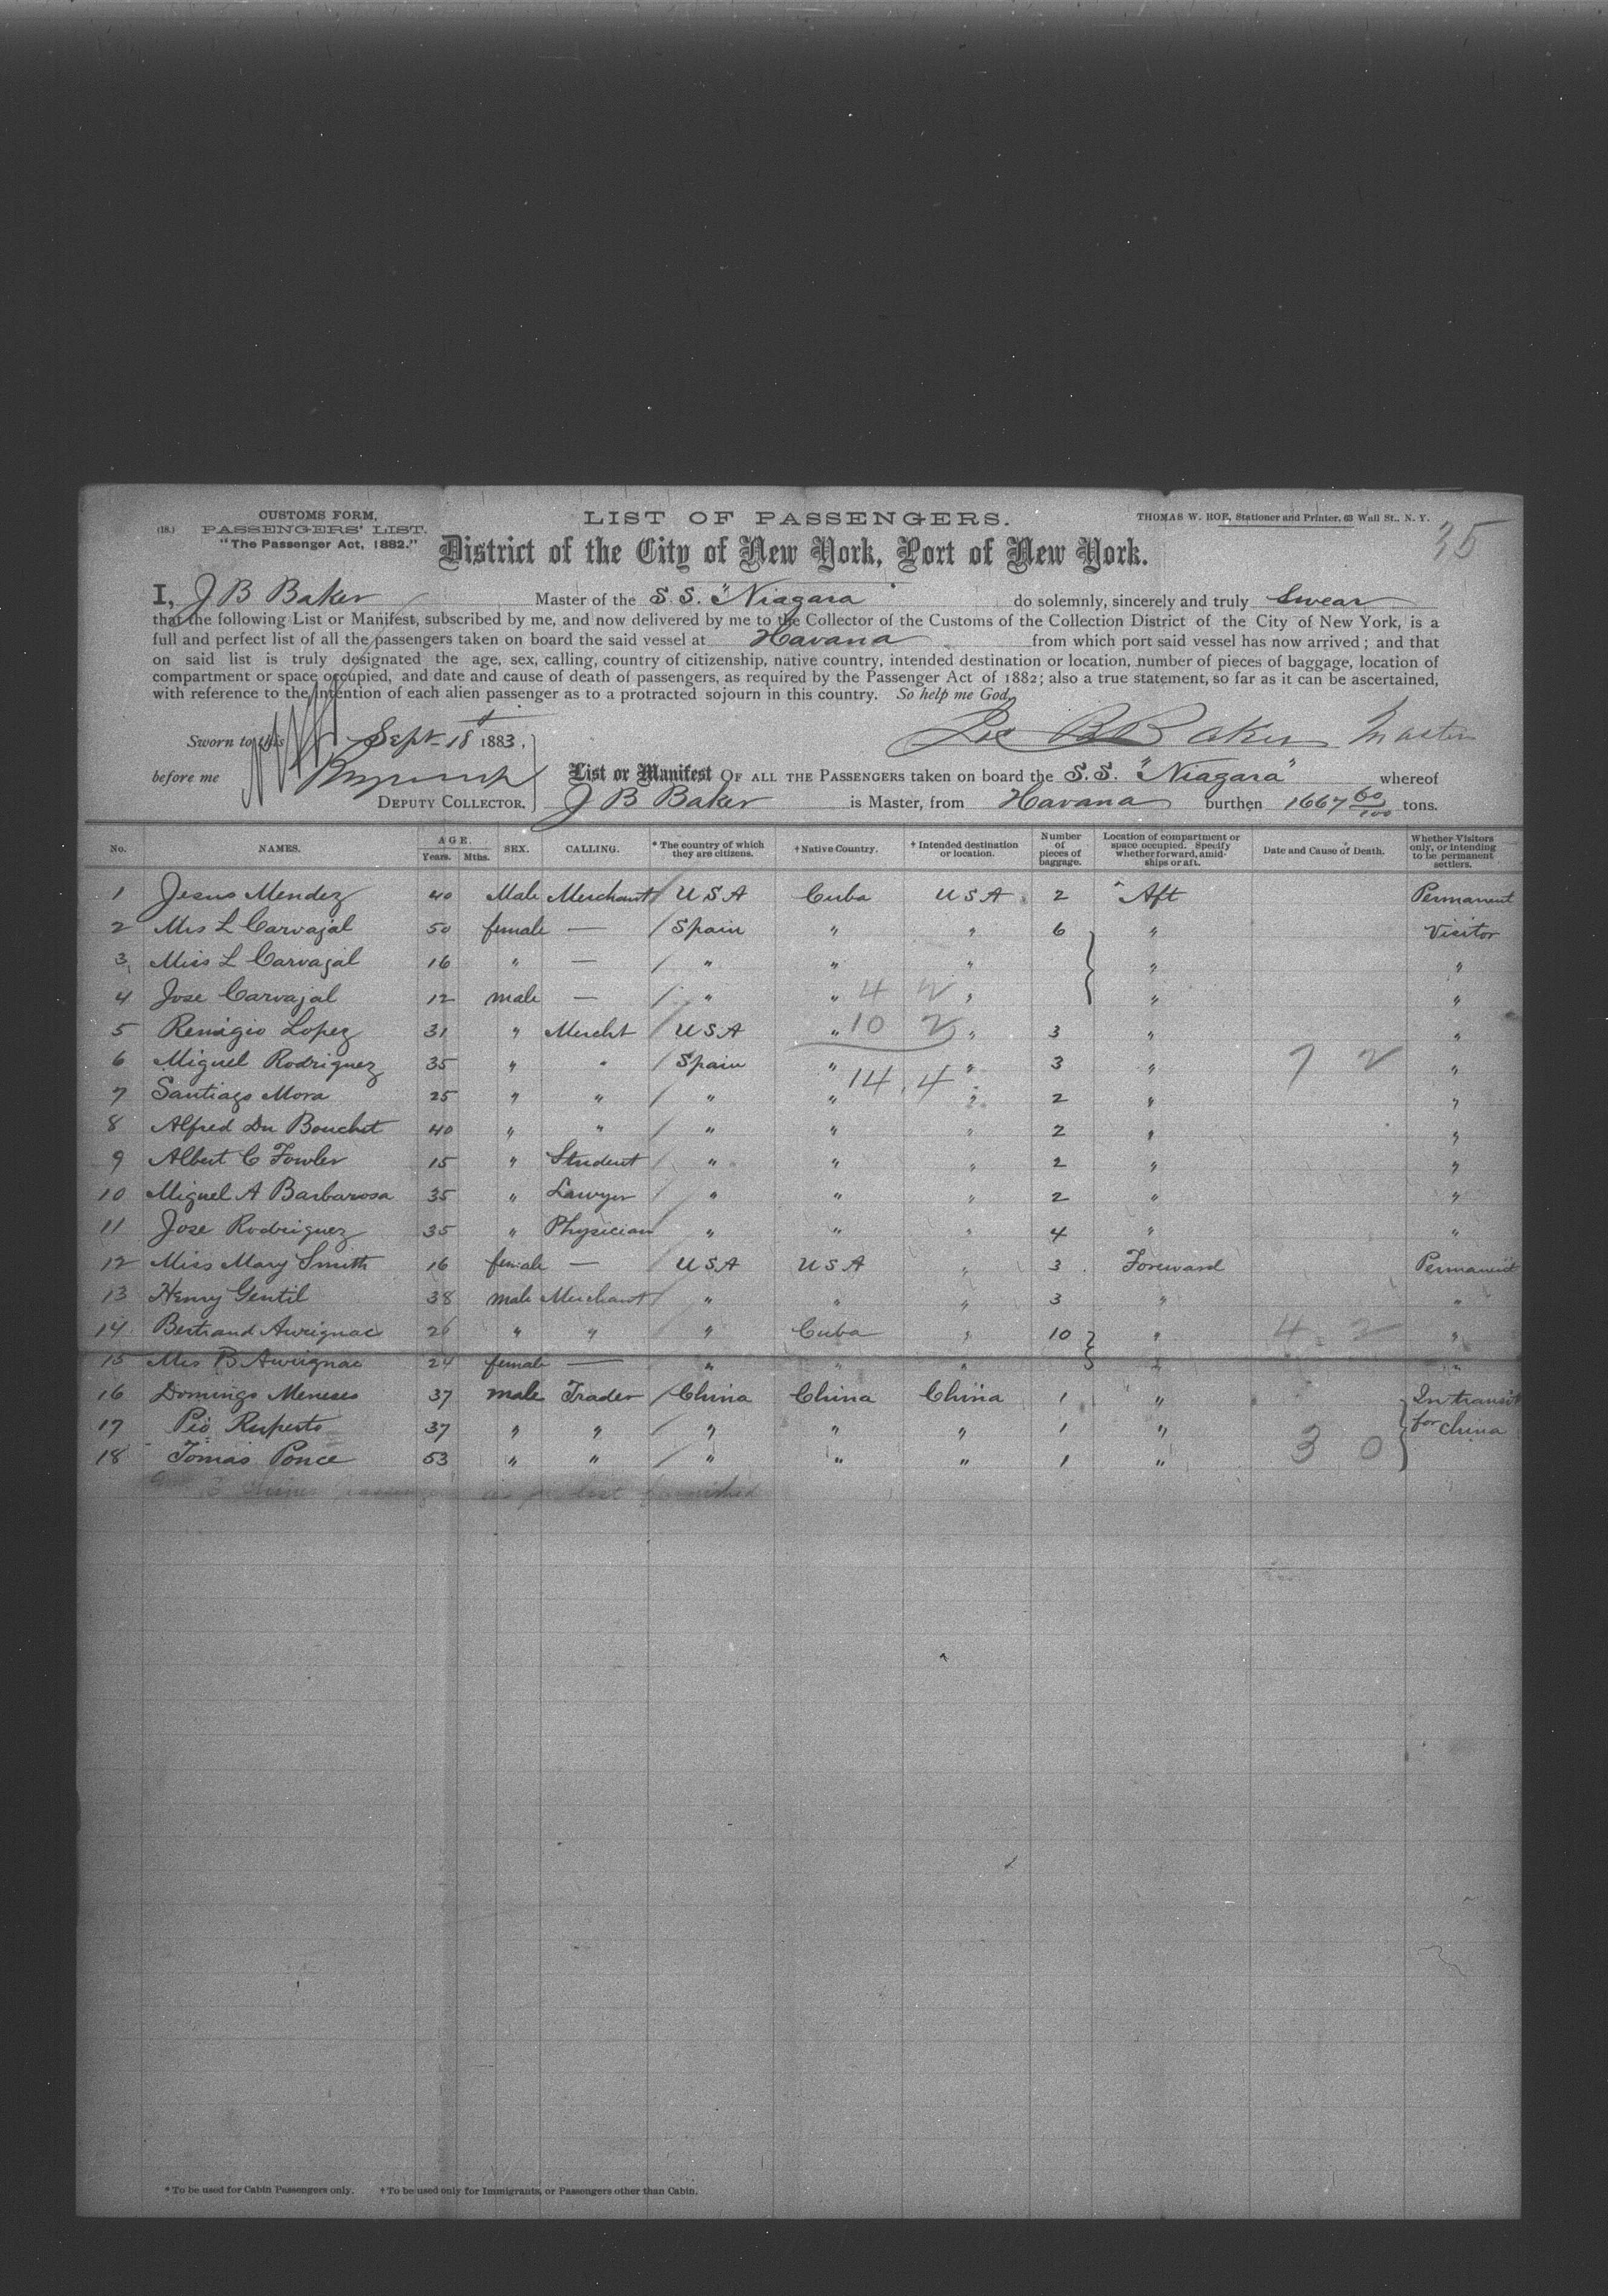 CUSTOMS FORM,
(18.) PASSENGERS' LIST.
"The Passenger Act, 1882."
LIST OF PASSENGERS.
THOMAS W. ROE, Stationer and Printer, 63 Wall St., N. Y.
35
District of the City of New York, Port of New York.
I, J B Baker Master of the S. S. "Niagara" do solemnly, sincerely and truly swear
that the following List or Manifest, subscribed by me, and now delivered by me to the Collector of the Customs of the Collection District of the City of New York, is a
full and perfect list of all the passengers taken on board the said vessel at Havana from which port said vessel has now arrived; and that
on said list is truly designated the age, sex, calling, country of citizenship, native country, intended destination or location, number of pieces of baggage, location of
compartment or space occupied, and date and cause of death of passengers, as required by the Passenger Act of 1882; also a true statement, so far as it can be ascertained,
with reference to the intention of each alien passenger as to a protracted sojourn in this country. So help me God.
Sworn to this Sept 18 1883.
B Baker Master
before me
DEPUTY COLLECTOR.
List or Manifest OF ALL THE PASSENGERS taken on board the S. S. "Niagara" whereof
J B Baker is Master, from Havana burthen 1667 60/100 tons.
No. NAMES. AGE. Years. Mths. SEX. CALLING. * The country of which they are citizens. † Native Country. † Intended destination or location. Number of pieces of baggage. Location of compartment or space occupied. Specify whether forward, amidships or aft. Date and Cause of Death. Whether Visitors only, or intending to be permanent settlers.
1 Jesus Mendez 40 Male Merchant / U S A Cuba U S A 2 Aft Permanent
2 Mrs L Carvajal 50 female — / Spain " " 6 " Visitor
3 Miss L Carvajal 16 " — / " " " " "
4 Jose Carvajal 12 male — / " " 4 2 " " "
5 Remigio Lopez 31 " Mercht / U S A " 10 2 " 3 " "
6 Miguel Rodriguez 35 " " / Spain " " 3 " 7 2 "
14 4
7 Santiago Mora 25 " " / " " " 2 " "
8 Alfred Du Bouchet 40 " " / " " " 2 " "
9 Albert C Fowler 15 " Student / " " " 2 " "
10 Miguel A Barbarosa 35 " Lawyer / " " " 2 " "
11 Jose Rodriguez 35 " Physician " " " 4 " "
12 Miss Mary Smith 16 female — / U S A U S A " 3 Foreward Permanent
13 Henry Gentil 38 male Merchant / " " " 3 " "
14 Bertrand Awrignac 26 " " / " Cuba " 10 " 4 2 "
15 Mrs B Awrignac 24 female — " " " " "
16 Domingo Meneses 37 male Trader / China China China 1 " In transit
17 Pio Ruperto 37 " " / " " " 1 " for China
18 Tomas Ponce 53 " " / " " " 1 " 3 0
passengers as per list furnished
* To be used for Cabin Passengers only. † To be used only for Immigrants, or Passengers other than Cabin.